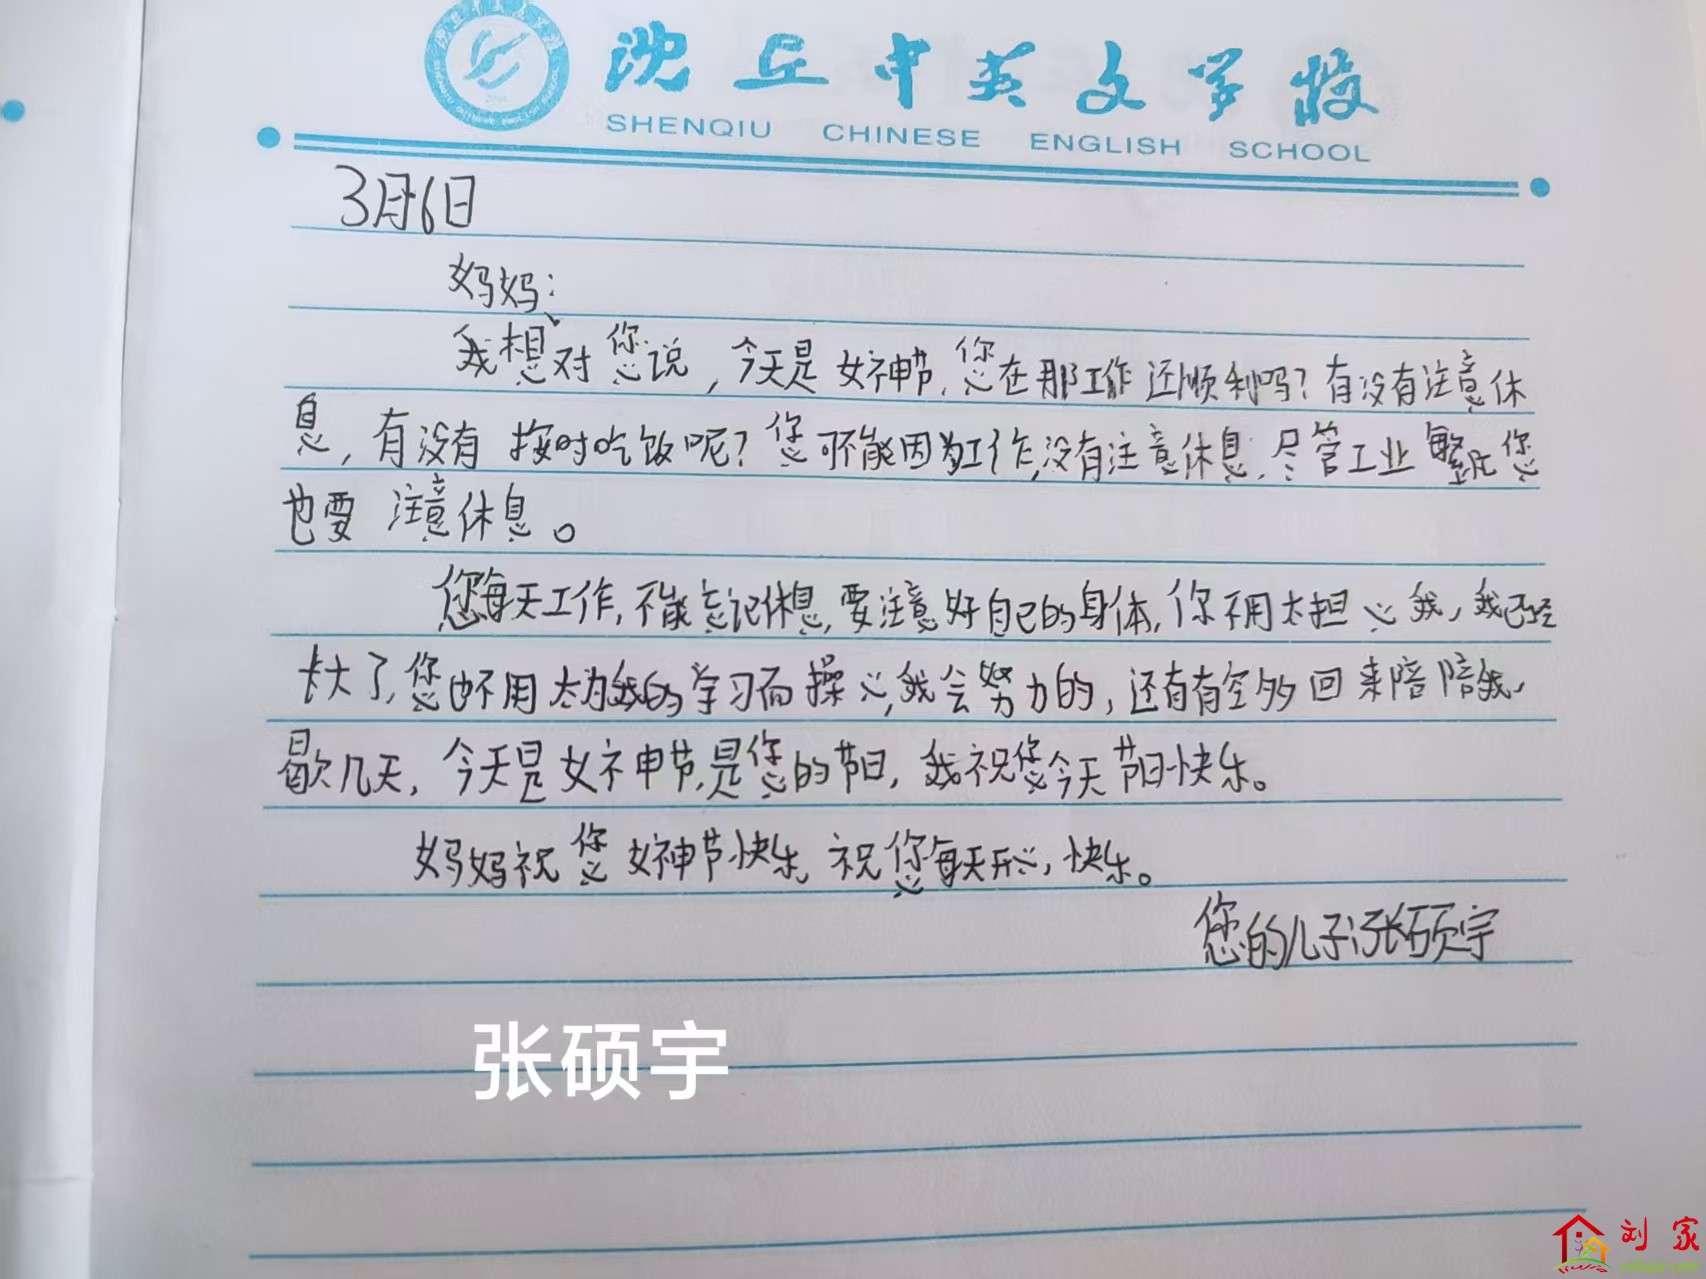 沈丘中英文学校
SHENQIU CHINESE ENGLISH SCHOOL
3月6日
妈妈:
我想对您说，今天是女神节，您在那工作还顺利吗？有没有注意休
息，有没有按时吃饭呢？您可不能因为工作，没有注意休息，尽管工业繁忙您
也要注意休息。
您每天工作，不能忘记休息，要注意好自己的身体，你不用太担心我，我已经
长大了，您也不用太为我的学习而操心，我会努力的，还有有空多回来陪陪我，
歇几天，今天是女神节，是您的节日，我祝您今天节日快乐。
妈妈祝您女神节快乐，祝您每天开心，快乐。
您的儿子张硕宇
张硕宇
刘家